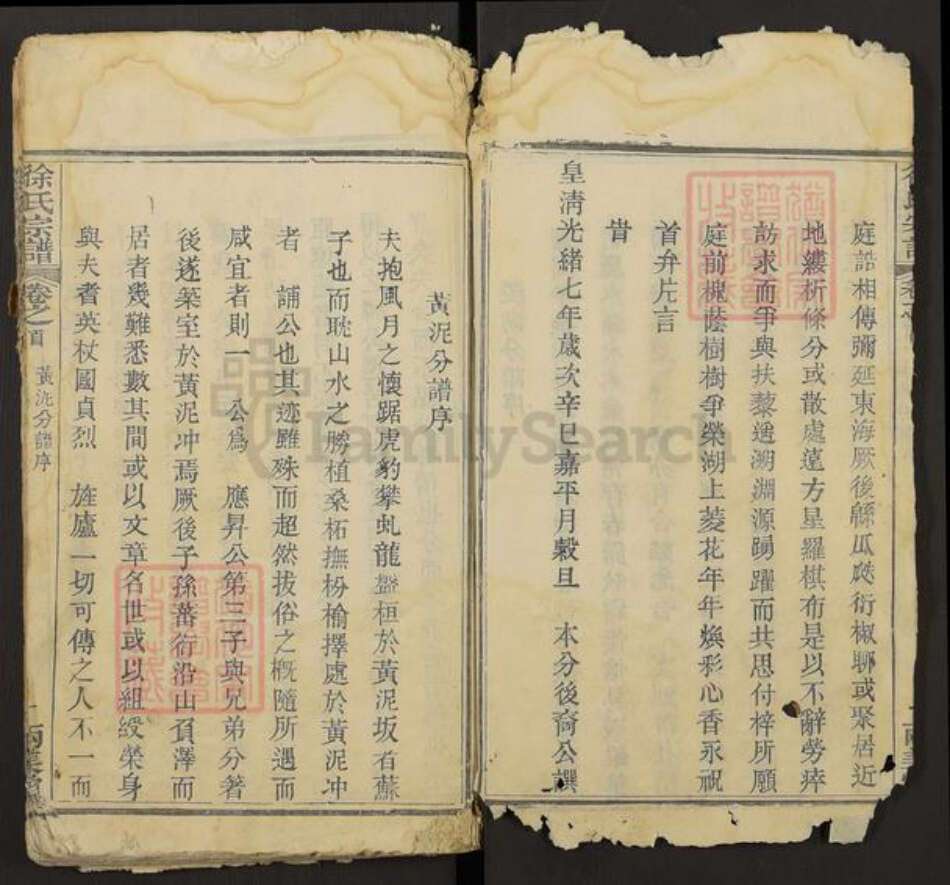 庭誥相傳彌延東海厥後緜瓜瓞衍椒聊或聚居近
地縷析條分或散處遠方星羅棋布是以不辭勞瘁
訪求而爭與扶藜遥溯淵源踴躍而共思付梓所願
庭前槐蔭樹樹爭榮湖上菱花年年焕彩心香永祝
首弁片言
皆
皇清光緒七年歲次辛巳嘉平月穀旦 本分後裔公譔
黃泥分譜序
夫抱風月之懷踞虎豹攀虬龍盤桓於黃泥坂者蘇
子也而耽山水之勝植桑柘撫枌榆擇處於黃泥冲
者 誧公也其迹雖殊而超然拔俗之概隨所遇而
咸宜者則一 公爲 應昇公第三子與兄弟分著
後遂築室於黃泥冲焉厥後子孫蕃衍沿山負澤而
居者幾難悉數其間或以文章名世或以組綬榮身
與夫耆英杖國貞烈 旌廬一切可傳之人不一而
徐氏宗譜 卷之首 黃泥分譜序 一
FamilySearch